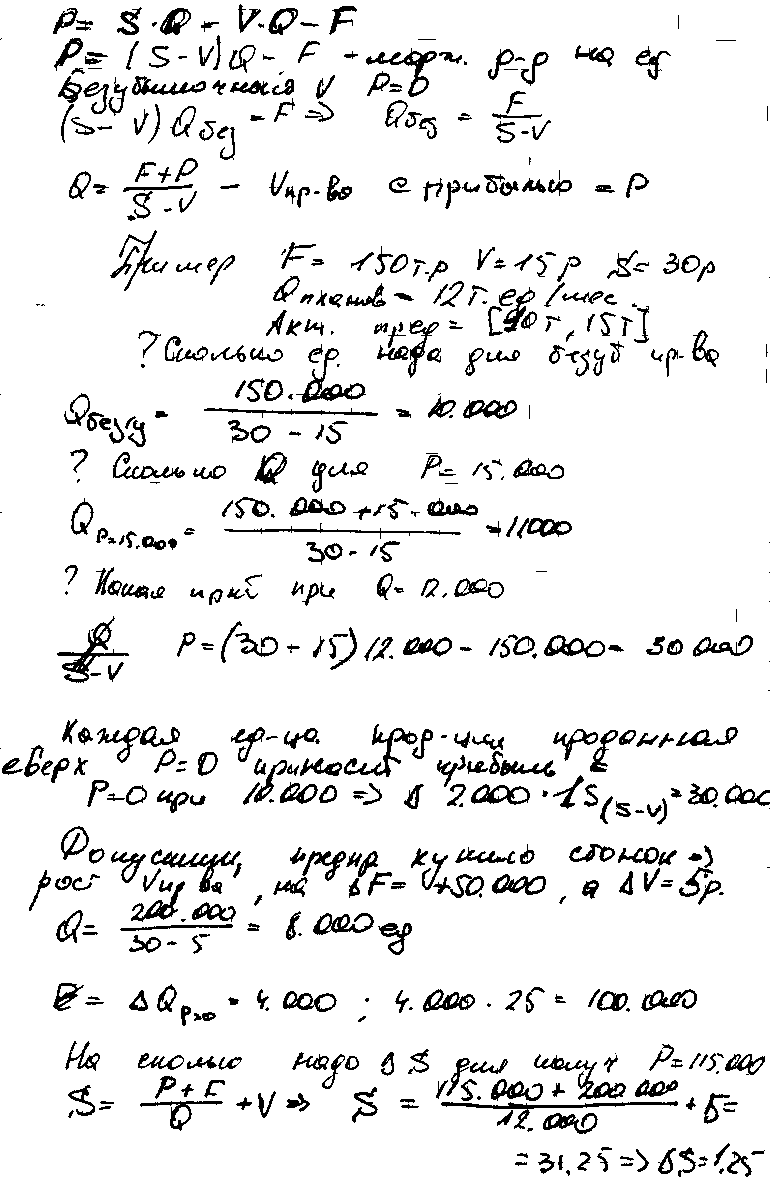 P = S·Q - V·Q - F
P = (S-V)Q - F - марж. р-р на ед
Безубыточный V P=0
(S-V) Qбез = F => Qбез = F/(S-V)
Q = (F+P)/(S-V) - Vпр-во с прибылью = P
Пример F = 150т.р V=15р S=30р
Qпланов = 12т.ед/мес.
Акт. пред = [10т, 15т]
? Сколько ед. надо для безуб пр-ва
Qбезу = 150.000/(30-15) = 10.000
? Сколько Q для P = 15.000
Qp=15.000 = (150.000+15.000)/(30-15) = 11000
? Какая приб при Q = 12.000
Q/(S-V) P=(30-15)12.000 - 150.000 = 30 000
Каждая ед-ца прод-ции проданная
сверх P=0 приносит прибыль
P=0 при 10.000 => Δ 2.000·15(S-V) = 30.000
Допустим, предпр купило станок =>
рост Vпр-ва, на ΔF= +50.000, а ΔV=5р.
Q = 200.000/(30-5) = 8.000 ед
= ΔQp=0 = 4.000 ; 4.000·25 = 100.000
На сколько надо Δ S для получ P=115.000
S = (P+F)/Q + V => S = (115.000+200 000)/12.000 + 5=
= 31.25 => ΔS=1,25